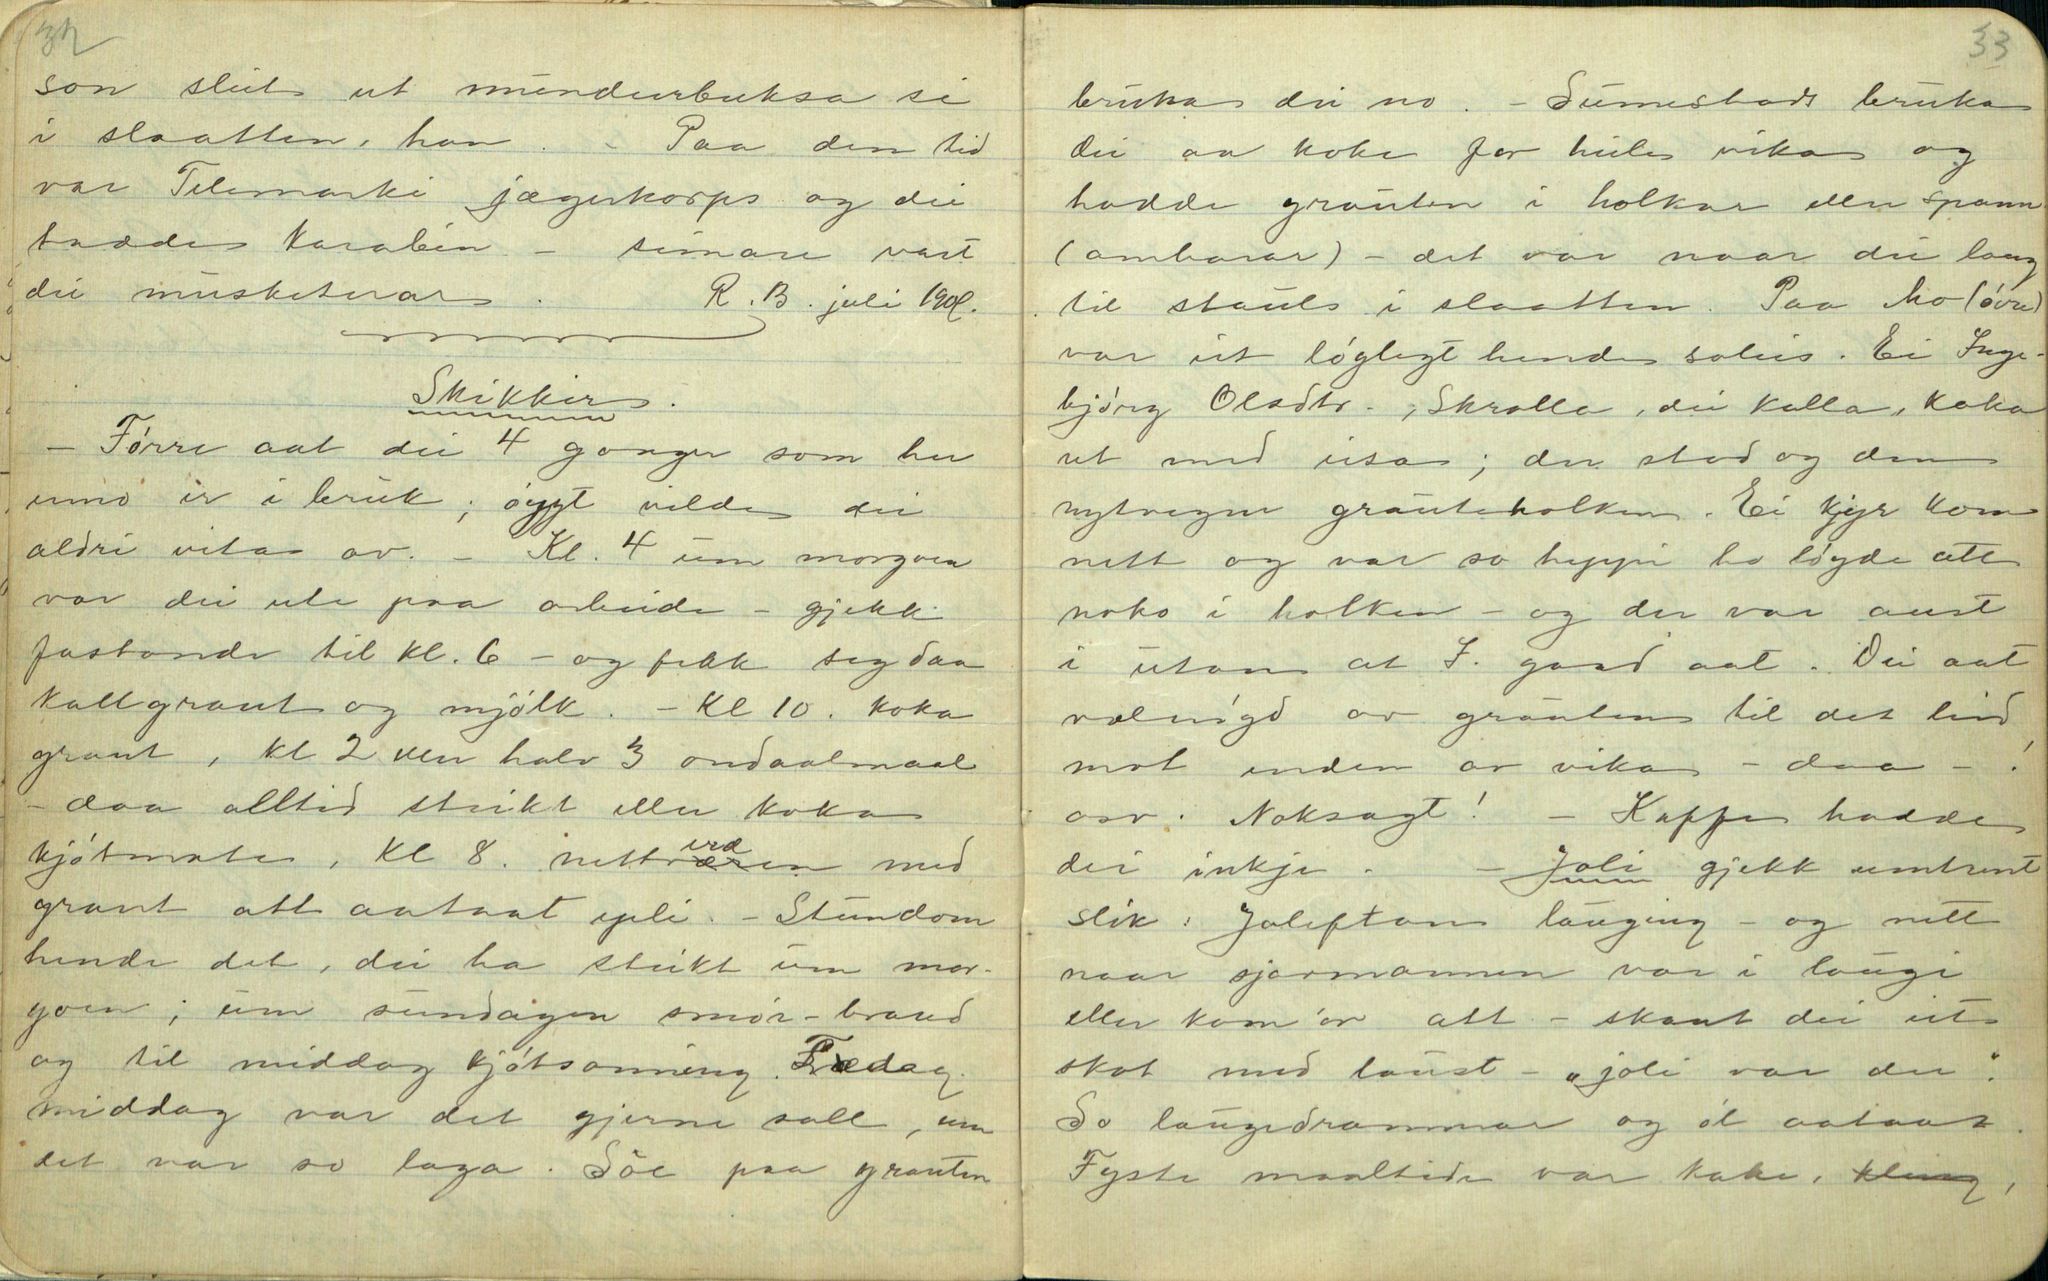 32
son sleit ut mundurbuksa si
i slaatten, han. - Paa den tid
var Telemarki jægerkorps og dei
hadde karabin - simare vart
dei musketerar. R. B. juli 1908.
Skikkir.
- Förre aat dei 4 gonger som her
enno er i bruk; öygt vilde dei
aldri vita av. - Kl. 4 um morgoen
var dei ute paa arbeide - gjekk
fastande til kl. 6 - og fekk seg daa
kallgraut og mjölk. - Kl 10. koka
graut, kl 2 eller halv 3 ondaalmaal
- daa alltid steikt eller koka
kjötmate, kl 8. nettverden med
graut att aataat ijuli. - Stundom
hende det, dei ha steikt um mor-
goen; um sundagen smör-braud
og til middag kjötsoning. Fredag
middag var det gjerne sall, um
det var so laga. Söe paa grauten
33
bruka dei no. - Sumestads bruka
dei aa koke for heile vika og
hadde grauten i holkar eller spann
(ambarar) - det var naar dei laag
til stauls i slaatten. Paa Mo (övre)
var eit löglegt hende soleis. Ei Inge-
björg Olsdtr. „Skralla„ dei kalla, koka
ut med eisa; der stod og den
nytvegne grauteholken. Ei kjyr kom
nett og var so heppi ho löyde att
noko i holken - og der var aust
i utan at I. gaad aat. Dei aat
velnögd av grauten til det leid
mot enden av vika - daa - !
osv. Noksagt! - Kaffe hadde
dei inkje. - Joli gjekk umtrent
slik: Joleftan lauging - og nett
naar sjørmannen var i laugi
eller kom 'or att - skaut dei eit
skot med laust - „joli var der“.
So laugedrammar og öl aataat.
Fyste maaltide var kake, kling,